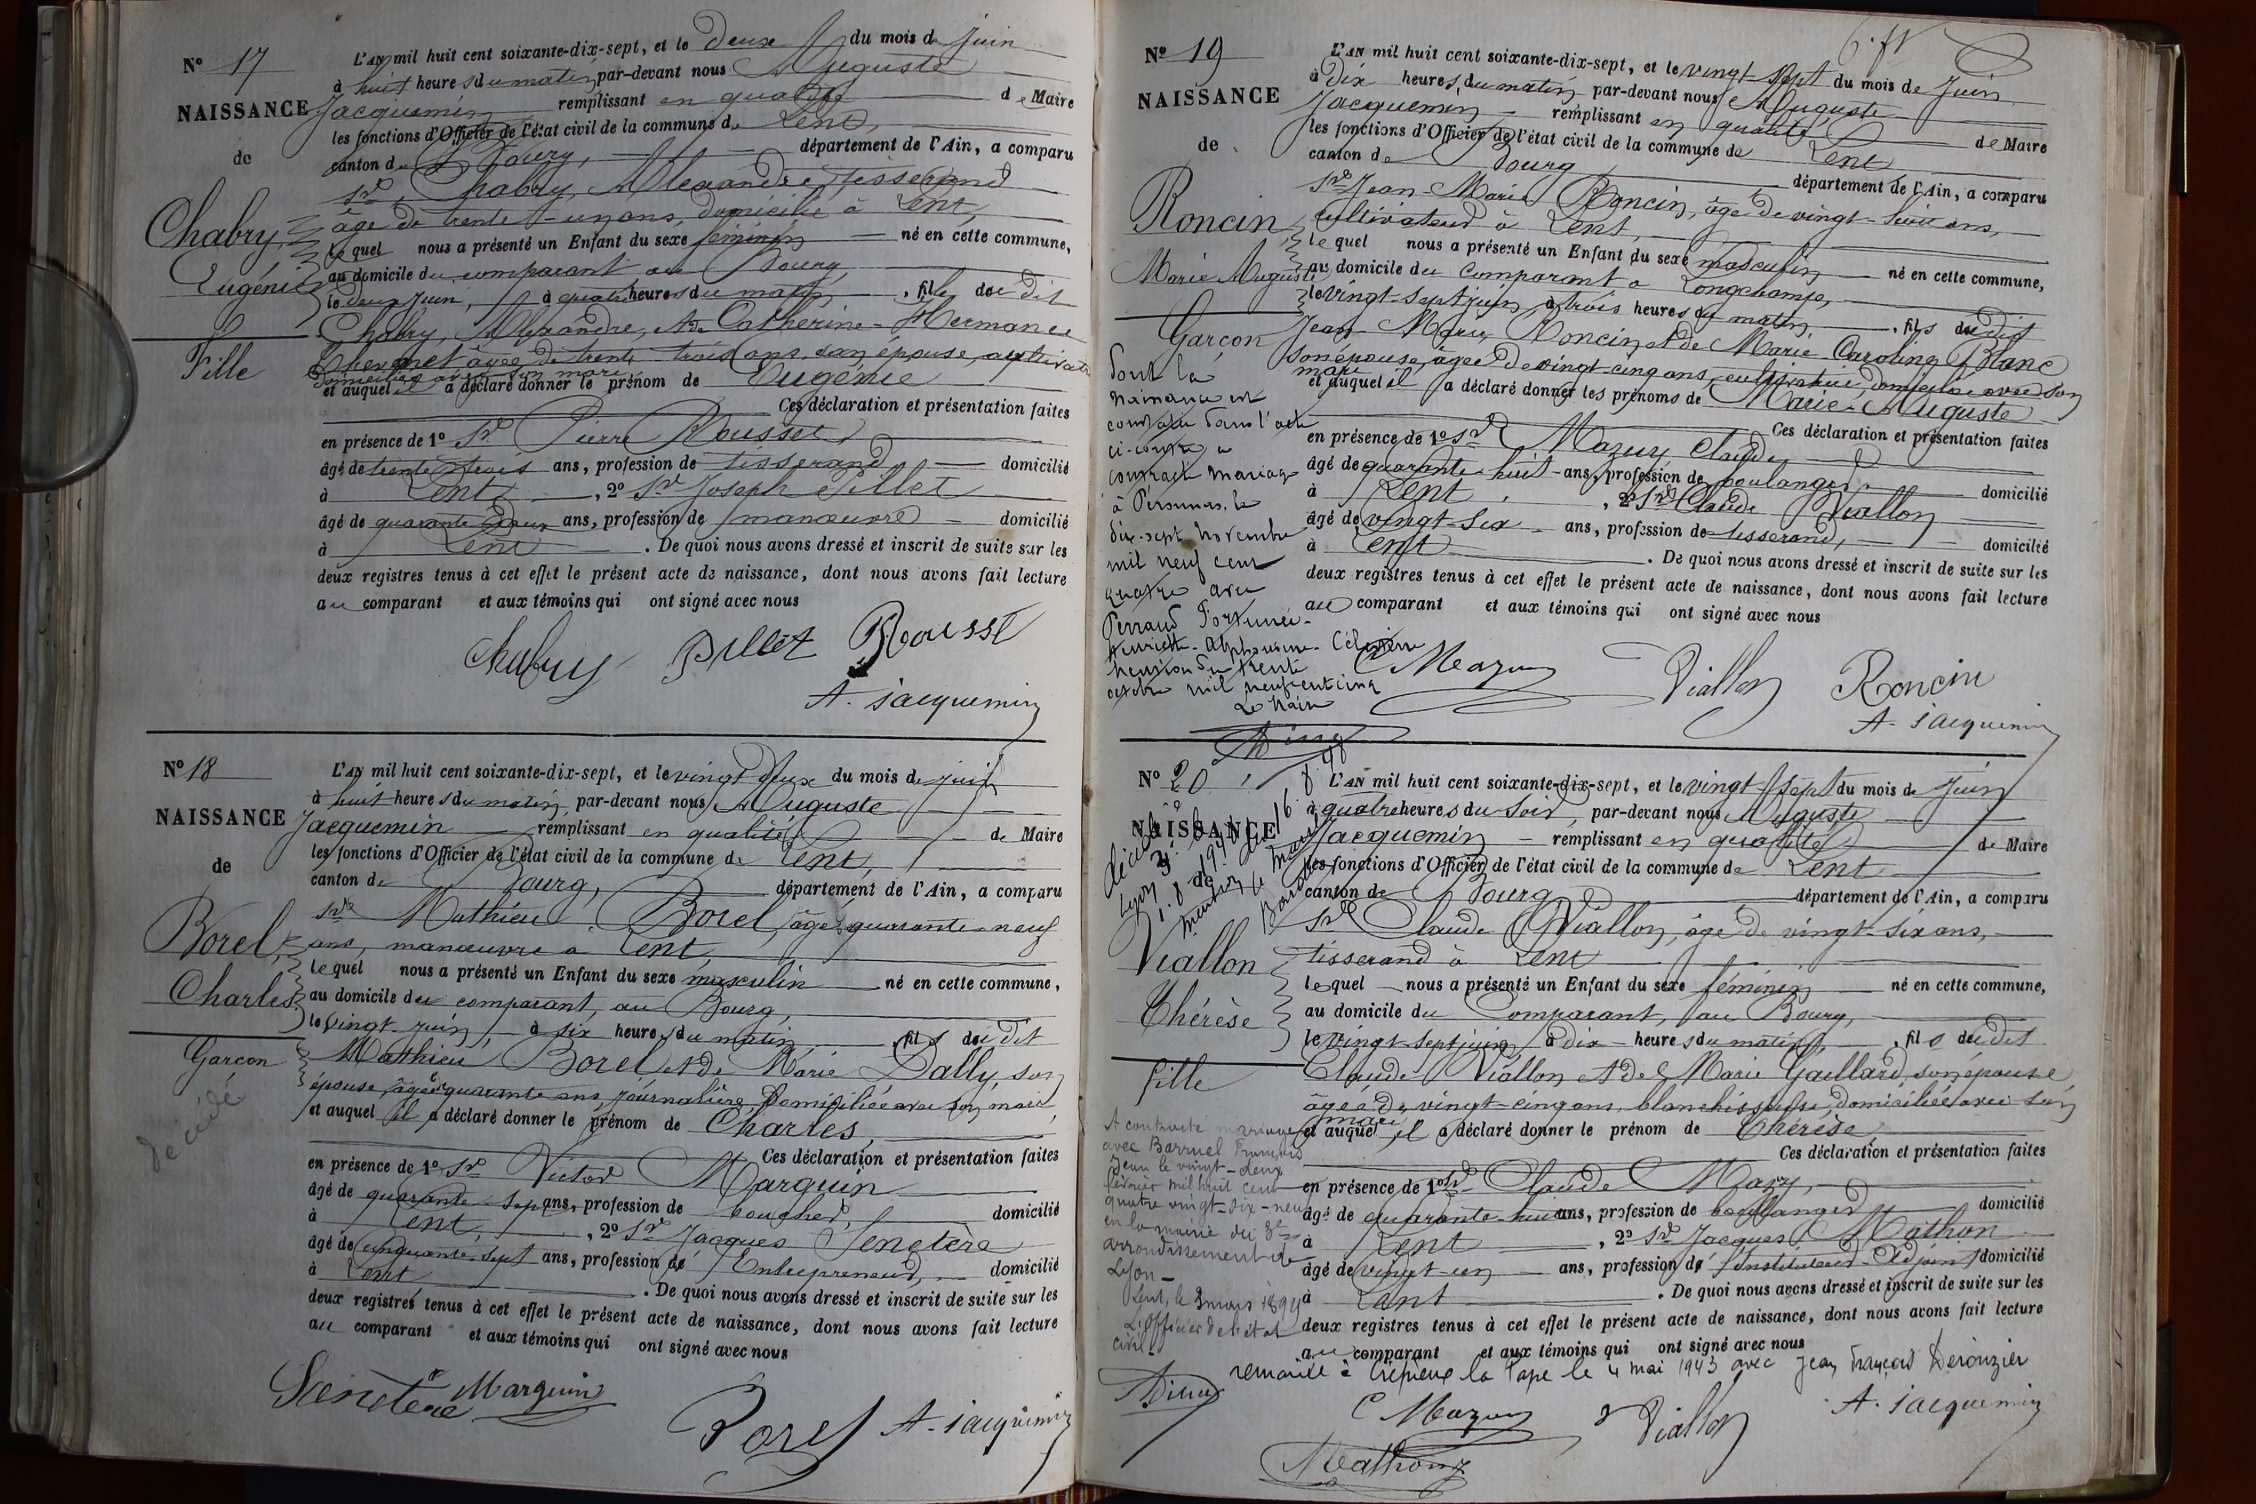 Nº 17
NAISSANCE
de
Chabry,
Eugénie
Fille
L'AN mil huit cent soixante-dix-sept, et le deux du mois de Juin
à huit heures du matin par-devant nous Auguste
Jacquemin remplissant en qualité de Maire
les fonctions d'Officier de l'état civil de la commune de Lent,
canton de Bourg, département de l'Ain, a comparu
Sr. Chabry, Alexandre, tisserand
âgé de trente-un ans, domicilié à Lent,
lequel nous a présenté un Enfant du sexe féminin né en cette commune,
au domicile du comparant au Bourg,
le deux Juin, à quatre heures du matin, fille du dit
Chabry, Alexandre, et de Catherine-Hermance
âgée de trente trois ans, son épouse, cultivatrice
domiciliée avec son mari
et auquel il a déclaré donner le prénom de Eugénie
Ces déclaration et présentation faites
en présence de 1º Sr. Pierre Rousset
âgé de trente trois ans, profession de tisserand domicilié
à Lent, 2º Sr. Joseph Pillet
âgé de quarante deux ans, profession de manœuvre domicilié
à Lent. De quoi nous avons dressé et inscrit de suite sur les
deux registres tenus à cet effet le présent acte de naissance, dont nous avons fait lecture
au comparant et aux témoins qui ont signé avec nous
Chabry Pillet Rousset
A. Jacquemin
Nº 18
NAISSANCE
de
Borel,
Charles
Garçon
décédé
L'AN mil huit cent soixante-dix-sept, et le vingt deux du mois de juin
à huit heures du matin, par-devant nous Auguste
Jacquemin remplissant en qualité de Maire
les fonctions d'Officier de l'état civil de la commune de Lent,
canton de Bourg, département de l'Ain, a comparu
Sr. Mathieu Borel, âgé quarante-neuf
ans, manœuvre à Lent,
lequel nous a présenté un Enfant du sexe masculin né en cette commune,
au domicile du comparant, au Bourg,
le vingt juin, à six heures du matin, fils du dit
Mathieu Borel et de Marie Dally, son
épouse, âgée quarante ans, journalière, domiciliée avec son mari,
et auquel il a déclaré donner le prénom de Charles,
Ces déclaration et présentation faites
en présence de 1º Sr. Victor Marguin
âgé de quarante-sept ans, profession de boucher, domicilié
à Lent, 2º Sr. Jacques Senetère
âgé de cinquante-sept ans, profession de Entrepreneur, domicilié
à Lent. De quoi nous avons dressé et inscrit de suite sur les
deux registres tenus à cet effet le présent acte de naissance, dont nous avons fait lecture
au comparant et aux témoins qui ont signé avec nous
Senetère Marguin
Borel A. Jacquemin
Nº 19
NAISSANCE
de
Roncin,
Marie Auguste
Garçon
Dont la
naissance est
constatée dans l'acte
ci-contre, a
contracté mariage
à Péronnas, le
dix-sept novembre
mil neuf cent
quatre avec
Perraud Fortunée-
Henriette-Alphonsine-
Mention du trente
octobre mil neuf cent cinq
Le Maire
L'AN mil huit cent soixante-dix-sept, et le vingt-sept du mois de Juin
à dix heures du matin, par-devant nous Auguste
Jacquemin remplissant en qualité de Maire
les fonctions d'Officier de l'état civil de la commune de Lent
canton de Bourg département de l'Ain, a comparu
Sr. Jean-Marie Roncin, âgé de vingt-huit ans,
cultivateur à Lent,
lequel nous a présenté un Enfant du sexe masculin né en cette commune,
au domicile du comparant à Longchamp,
le vingt-sept juin à trois heures du matin, fils du dit
Jean-Marie Roncin et de Marie Caroline Blanc
son épouse, âgée de vingt-cinq ans, cultivatrice domiciliée avec son
mari
et auquel il a déclaré donner les prénoms de Marie-Auguste
Ces déclaration et présentation faites
en présence de 1º Sr. Mazuy Claude
âgé de quarante-huit ans, profession de boulanger domicilié
à Lent, 2º Sr. Claude Viallon
âgé de vingt-six ans, profession de tisserand, domicilié
à Lent. De quoi nous avons dressé et inscrit de suite sur les
deux registres tenus à cet effet le présent acte de naissance, dont nous avons fait lecture
au comparant et aux témoins qui ont signé avec nous
C Mazuy Viallon Roncin
A. Jacquemin
Nº 20
NAISSANCE
de
Viallon
Thérèse
Fille
A contracté mariage
avec Barruel François
Jean le vingt-deux
février mil huit cent
quatre vingt-dix-neuf
en la mairie du 3e
arrondissement de
Lyon-
Lent, le 3 mars 1899
L'officier de l'état
civil
L'AN mil huit cent soixante-dix-sept, et le vingt-sept du mois de Juin
à quatre heures du soir, par-devant nous Auguste
Jacquemin remplissant en qualité de Maire
les fonctions d'Officier de l'état civil de la commune de Lent
canton de Bourg département de l'Ain, a comparu
Sr. Claude Viallon, âgé de vingt-six ans,
tisserand à Lent
lequel nous a présenté un Enfant du sexe féminin né en cette commune,
au domicile du comparant, au Bourg,
le vingt-sept juin, à dix heures du matin, fils du dit
Claude Viallon et de Marie Gaillard, son épouse
âgée de vingt-cinq ans, blanchisseuse, domiciliée avec son
mari
et auquel il a déclaré donner le prénom de Thérèse
Ces déclaration et présentation faites
en présence de 1º Sr. Claude Mazuy,
âgé de quarante-huit ans, profession de boulanger domicilié
à Lent, 2º Sr. Jacques Mathon
âgé de vingt-un ans, profession de Instituteur-Adjoint domicilié
à Lent. De quoi nous avons dressé et inscrit de suite sur les
deux registres tenus à cet effet le présent acte de naissance, dont nous avons fait lecture
au comparant et aux témoins qui ont signé avec nous
remariée à Crépieux la Pape le 4 mai 1943 avec Jean François Derouzier
C Mazuy Viallon A. Jacquemin
Mathon